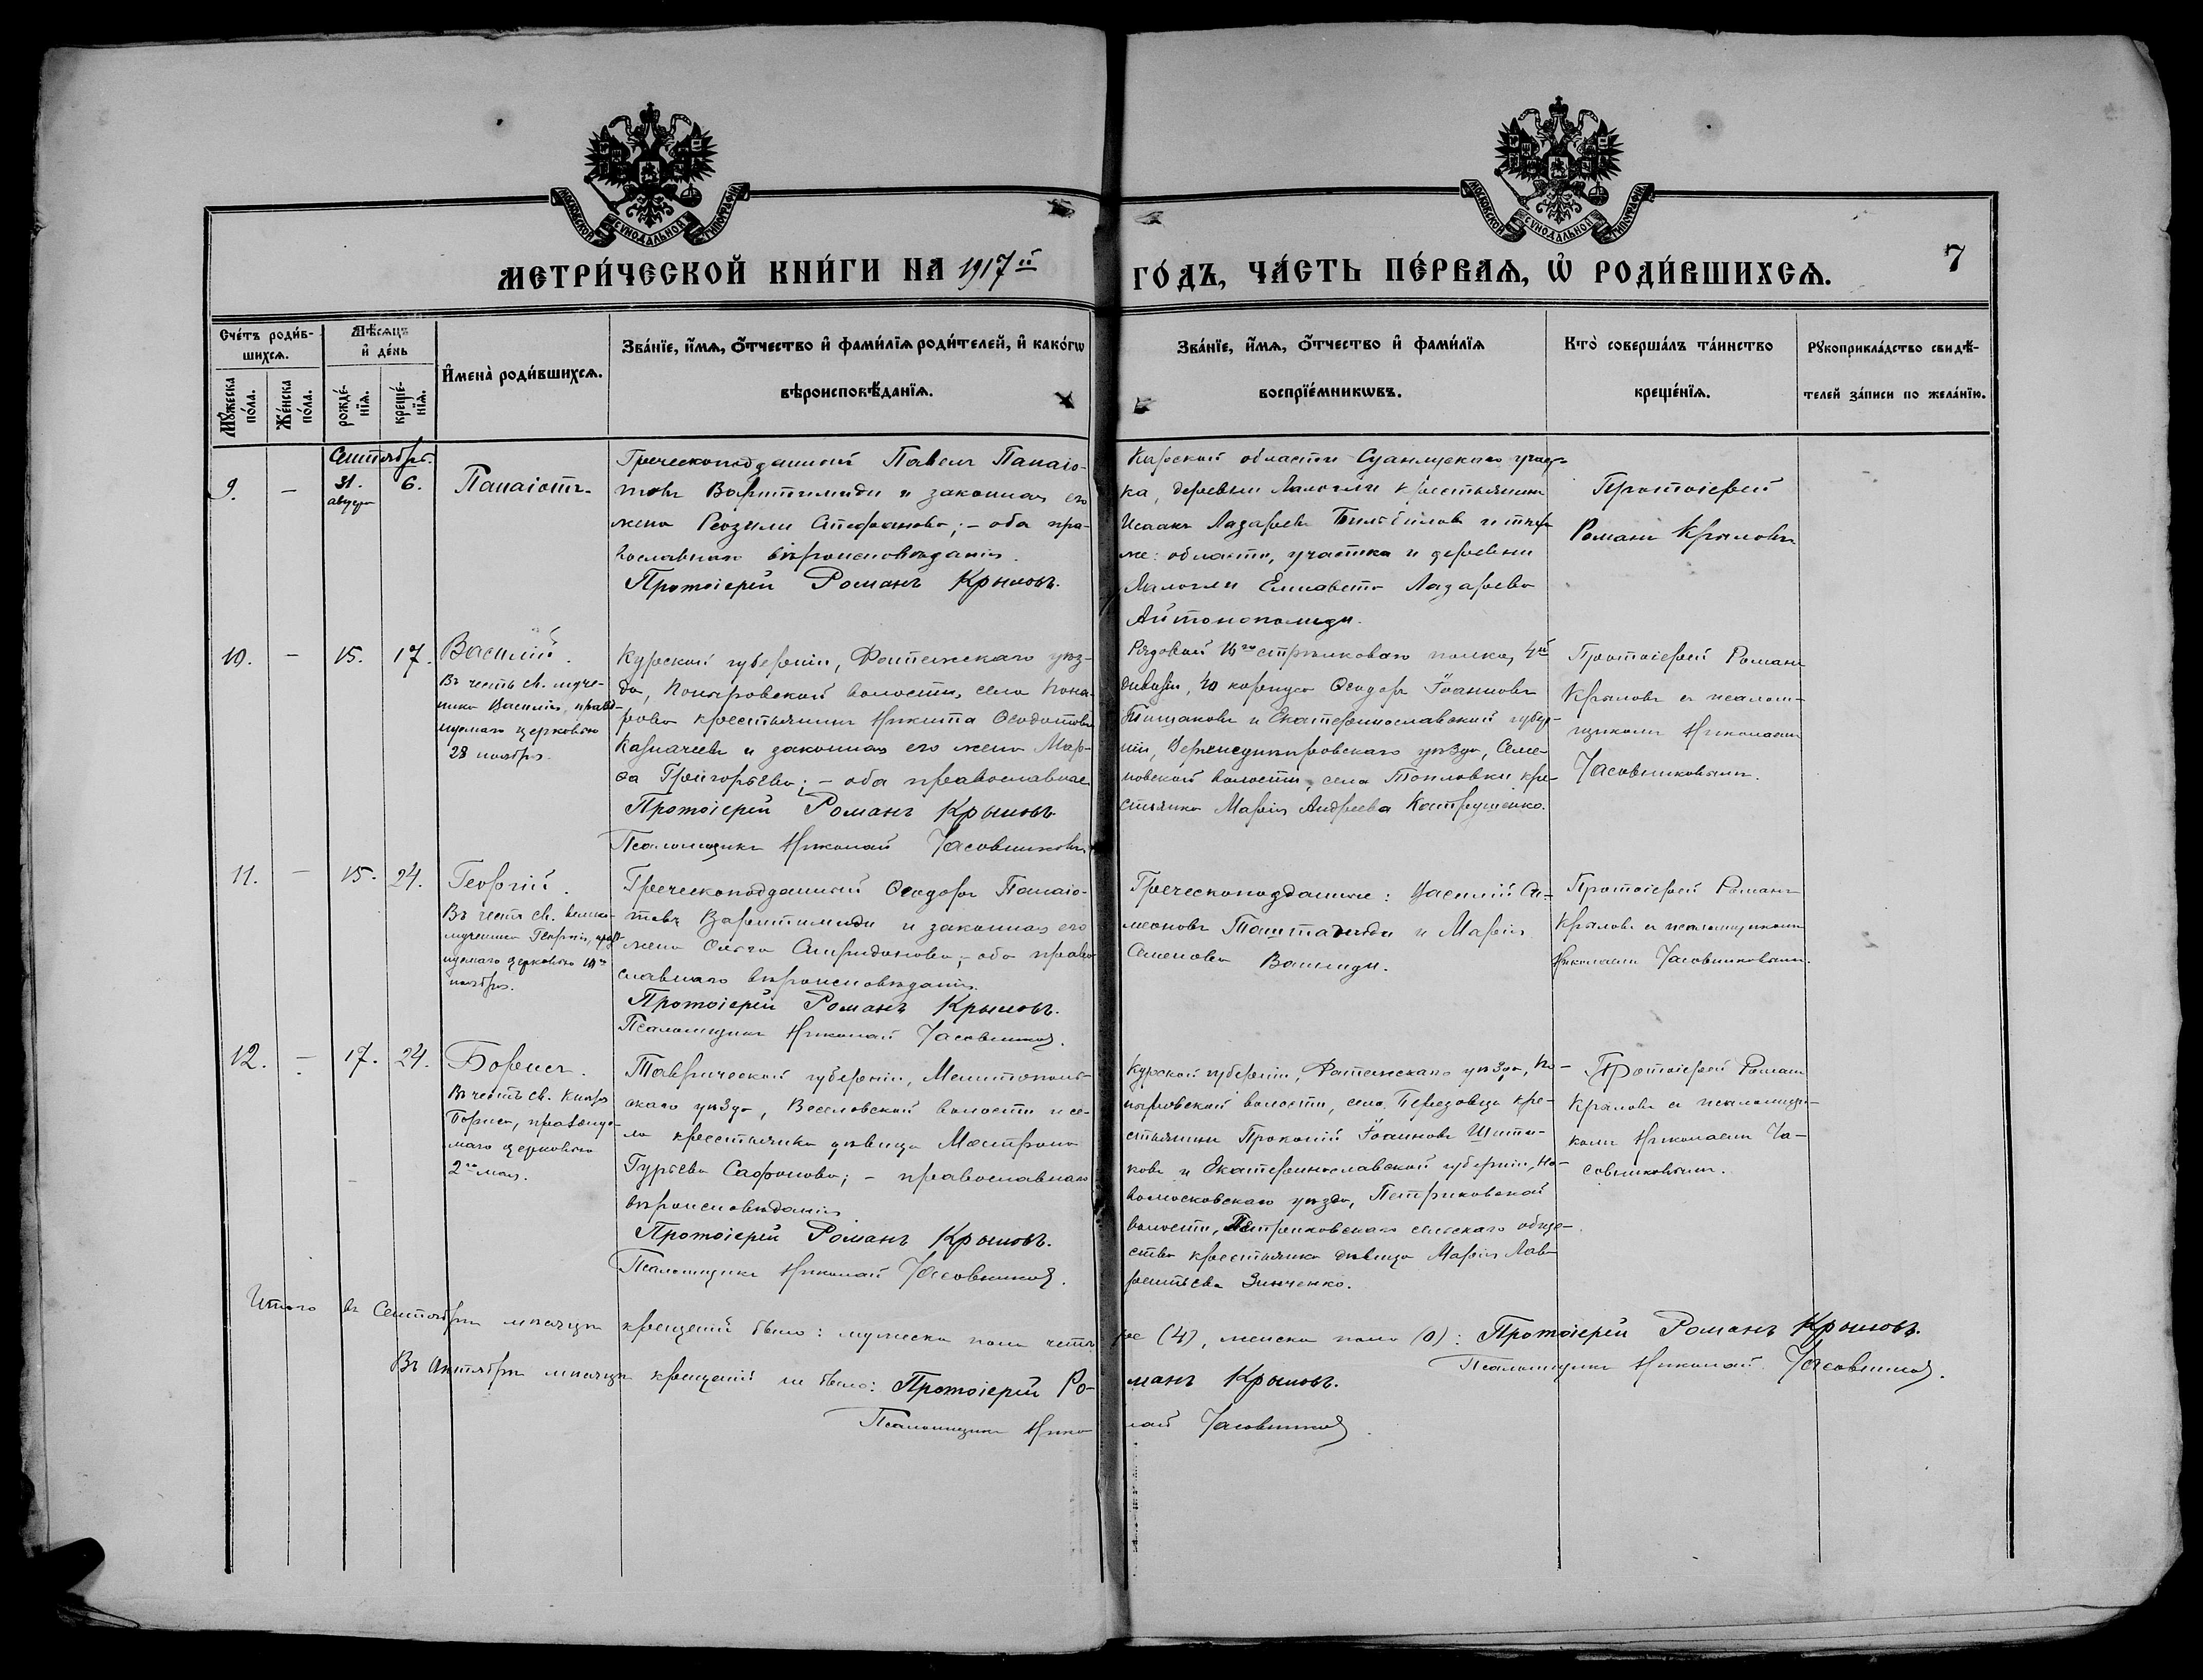 МОСКОВСКОЙ СѴНОДАЛЬНОЙ ТИПОГРАФІИ
МОСКОВСКОЙ СѴНОДАЛЬНОЙ ТИПОГРАФІИ
МЕТРИ́ЧЕСКОЙ КНИ́ГИ НА 1917й ГО́ДЪ, ЧА́СТЬ ПЕ́РВАѦ, Ѡ҆ РОДИ́ВШИХСѦ.
7
Сче́тъ роди́в-
шихсѧ.
Мꙋ́жеска по́ла.
Же́нска по́ла.
Мѣ́сѧцъ
и҆ де́нь
рожде́-
нїѧ.
креще́-
нїѧ.
И҆мена̀ роди́вшихсѧ.
Зва́нїе, и҆́мѧ, ѻ҆́тчество и҆ фами́лїѧ роди́телей, и҆ како́гѡ
вѣроисповѣ́данїѧ.
Зва́нїе, и҆́мѧ, ѻ҆́тчество и҆ фами́лїѧ
воспрїе́мникѡвъ.
Кто̀ соверша́лъ та́инство
креще́нїѧ.
Рꙋкоприкла́дство свидѣ́-
телей за́писи по жела́нїю.
Сентябрь.
9.
—
31.
августа
6.
Панаіотъ.
Греческоподданный Павелъ Панаіо-
товъ Варитимиди и законная его
жена Стефанова; – оба пра-
вославнаго вѣроисповѣданія.
Протоіерей Романъ Крыловъ.
Карской области участ-
ка, деревни крестьянинъ
Исаакъ Лазаревъ и той
же: области, участка и деревни
Елисавета Лазарева
Протоіерей
Романъ Крыловъ
10.
—
15.
17.
Василій.
Въ честь св. муче-
ника Василія, празд-
нуемаго церковью
28 ноября.
Курской губерніи, Фатежскаго уѣз-
да, Поныровской волости, села Поны-
рово крестьянинъ Никита Ѳеодотовъ
Казначеевъ и законная его жена Мар-
ѳа Григорьева; – оба православнае
Протоіерей Романъ Крыловъ
Псаломщикъ Николай Часовниковъ.
Рядовой 16го стрѣлковаго полка, 4й
дивизіи, 40 корпуса Ѳеодоръ Іоанновъ
и Екатеринославской губер-
ніи, Верхнеднѣпровскаго уѣзда, Семе-
новской волости, села Топловки кре-
стьянка Марія Андреева
Протоіерей Романъ
Крыловъ съ псалом-
щикомъ Николаемъ
Часовниковымъ.
11.
—
15.
24.
Георгій.
Въ честь св. велико-
мученика Георгія, празд-
нуемаго церковью
ноября.
Греческоподданный Ѳеодоръ Панаіо-
товъ Варитимиди и законная его
жена Ольга Спиридонова; – оба право
славнаго вѣроисповѣданія.
Протоіерей Романъ Крыловъ.
Псаломщикъ Николай Часовников.
Греческоподданные: Василій Си-
меоновъ и Марія
Семенова Василиди.
Протоіерей Романъ
Крыловъ съ псаломщикомъ
Николаемъ Часовниковымъ.
12.
—
17.
24.
Борисъ.
Въ честь св. князя
Бориса, праздну-
маго церковью
2го мая.
Таврической губерніи, Мелитополь-
скаго уѣзда, Веселовской волости и се-
ла крестьянка дѣвица Матрона
Гурьева Сафонова; – православнаго
вѣроисповѣданія
Протоіерей Романъ Крыловъ.
Псаломщикъ Николай Часовников.
Курской губерніи, Фатежскаго уѣзда, По-
ныровской волости, села кре-
стьянинъ Прокопій Іоанновъ Шита-
ковъ и Екатеринославской губерніи, Но-
вомосковскаго уѣзда, Петриковской
волости, Петриковскаго сельскаго обще-
ства крестьянка дѣвица Марія Лав-
рентьева Зинченко.
Протоіерей Романъ
Крыловъ съ псаломщи-
комъ Николаемъ Ча-
совниковымъ.
Итого въ Сентябрѣ мѣсяцѣ крещеній было: мужеска пола четы ре (4), женска пола (0): Протоіерей Романъ Крыловъ.
Псаломщикъ Николай Часовников.
Въ Октябрѣ мѣсяцѣ крещеній не было: Протоіерей Ро- манъ Крыловъ.
Псаломщикъ Нико лай Часовников